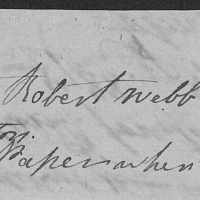 Robert Webb
Papers when